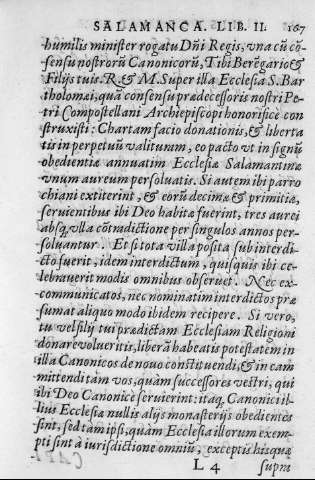 SALAMANCA. LIB. II. 167
humilis minister rogatu Dñi Regis, vna cũ cõ-
sensu nostrorũ Canonicorũ, Tibi Berẽgario &
Filijs tuis. R. & M. Super illa Ecclesia S. Bar
tholomæi, quã consensu prædecessoris nostri Pe-
tri Compostellani Archiepiscopi honorificè con
struxisti: Chartam facio donationis, & liberta
tis in perpetuũ valituram, eo pacto vt in signũ
obedientiæ annuatim Ecclesiæ Salamantinæ
vnum aureum persoluatis. Si autem ibi parro
chiani extiterint, & eorũ decimæ & primitiæ,
seruientibus ibi Deo habitæ fuerint, tres aurei
absq. vlla cõtradictione per singulos annos per-
soluantur. Et si tota villa posita sub interdi-
cto fuerit, idem interdictum, quisquis ibi ce-
lebrauerit modis omnibus obseruet. Nec ex-
communicatos, nec nominatim interdictos præ
sumat aliquo modo ibidem recipere. Si vero,
tu vel filij tui prædictam Ecclesiam Religioni
donare volueritis, liberã habeatis potestatem in
illa Canonicos de nouo constituendi, & in eam
mittendi tàm vos, quàm successores vestri, qui
ibi Deo Canonicè seruierint: itaq. Canonici il-
lius Ecclesia nullis alijs monasterijs obedientes
sint, sed tam ipsi, quàm Ecclesia illorum exem-
pti sint à iurisdictione omniũ, exceptis hisquæ
L 4 supra